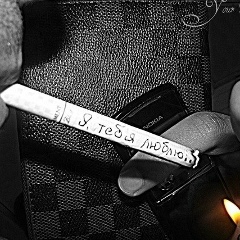 Я тебя люблю...
NOKIA